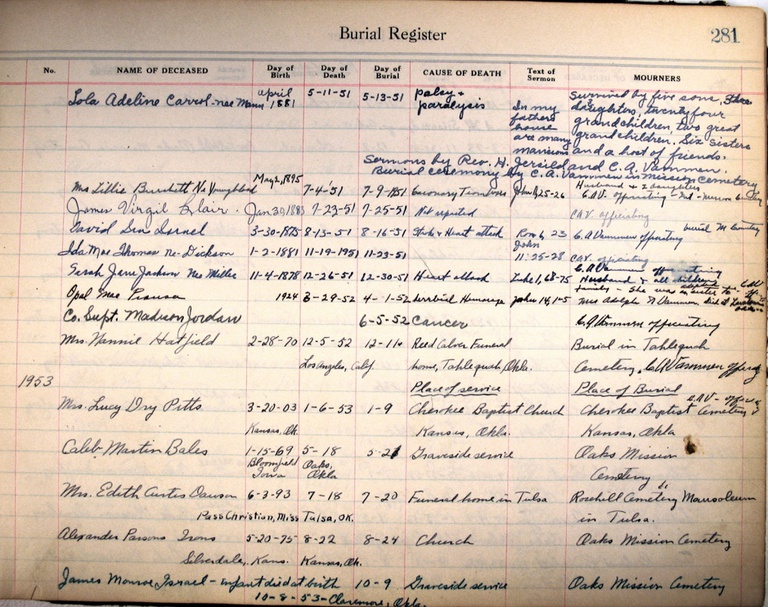 Burial Register
281
No. NAME OF DECEASED Day of Birth Day of Death Day of Burial CAUSE OF DEATH Text of Sermon MOURNERS
Lola Adeline Carrol-nee Mann April 1881 5-11-51 5-13-51 palsy + paralysis In my fathers house are many mansions Survived by five sons, three daughters, twenty four grandchildren, two great grandchildren, Six sisters and a host of friends.
Sermons by Rev. H. Jersild and C. A. Vammen.
Burial ceremony by C. A. Vammen in mission cemetery
Mrs Lillie Burchett May 2, 1895 7-4-51 7-9-1951 Coronary John 25-26 Husband & 2 daughters C.A.V. operating
James Virgil Blair. Jan 30, 7-23-51 7-25-51 Not reported C.A.V. operating
David Israel 3-30-1875 8-13-51 8-16-51 & Heart attack Rom 6, 23 C. A Vammen operating burial M Cemetery
Ida Mae Thomas ne-Dickson 1-2-1881 11-19-1951 11-23-51 John 11:25-28 C.A.V. operating
Sarah Jane Jackson Nee Miller 11-4-1878 12-26-51 12-30-51 Heart attack Luke 1, 68-75 C. A Vammen operating Husband & all children
Opel Mae 1924 3-29-52 4-1-52 Hemorage John 14, 1-5 family - She was sister to Mrs Adolph N Vammen
Co. Supt. Madison Jordan 6-5-52 Cancer C. A Vammen operating
Mrs. Nannie Hatfield 2-28-70 12-5-52 12-11 Reed Culver Funeral Burial in Tahlequah
Los Angeles, Calif. home, Tahlequah, Okla. Cemetery, C. A Vammen operating
1953 Place of service Place of Burial
Mrs. Lucy Dry Pitts 3-20-03 1-6-53 1-9 Cherokee Baptist Church Cherokee Baptist Cemetery C.A.V-
Kansas, Ok. Kansas, Okla. Kansas, Okla
Caleb Martin Bales 1-15-69 5-18 5-21 Graveside service Oaks Mission
Bloomfield Iowa Oaks, Okla. Cemetery
Mrs. Edith Curtis Dawson 6-3-93 7-18 7-20 Funeral home in Tulsa Rosehill Cemetery Mausoleum
Pass Christian, Miss Tulsa, Ok. in Tulsa.
Alexander Parsons Irons 5-20-75 8-22 8-24 Church Oaks Mission Cemetery
Silverdale, Kans. Kansas, Ok.
James Monroe Israel - infant died at birth 10-9 Graveside service Oaks Mission Cemetery
10-8-53-Claremore, Okla.